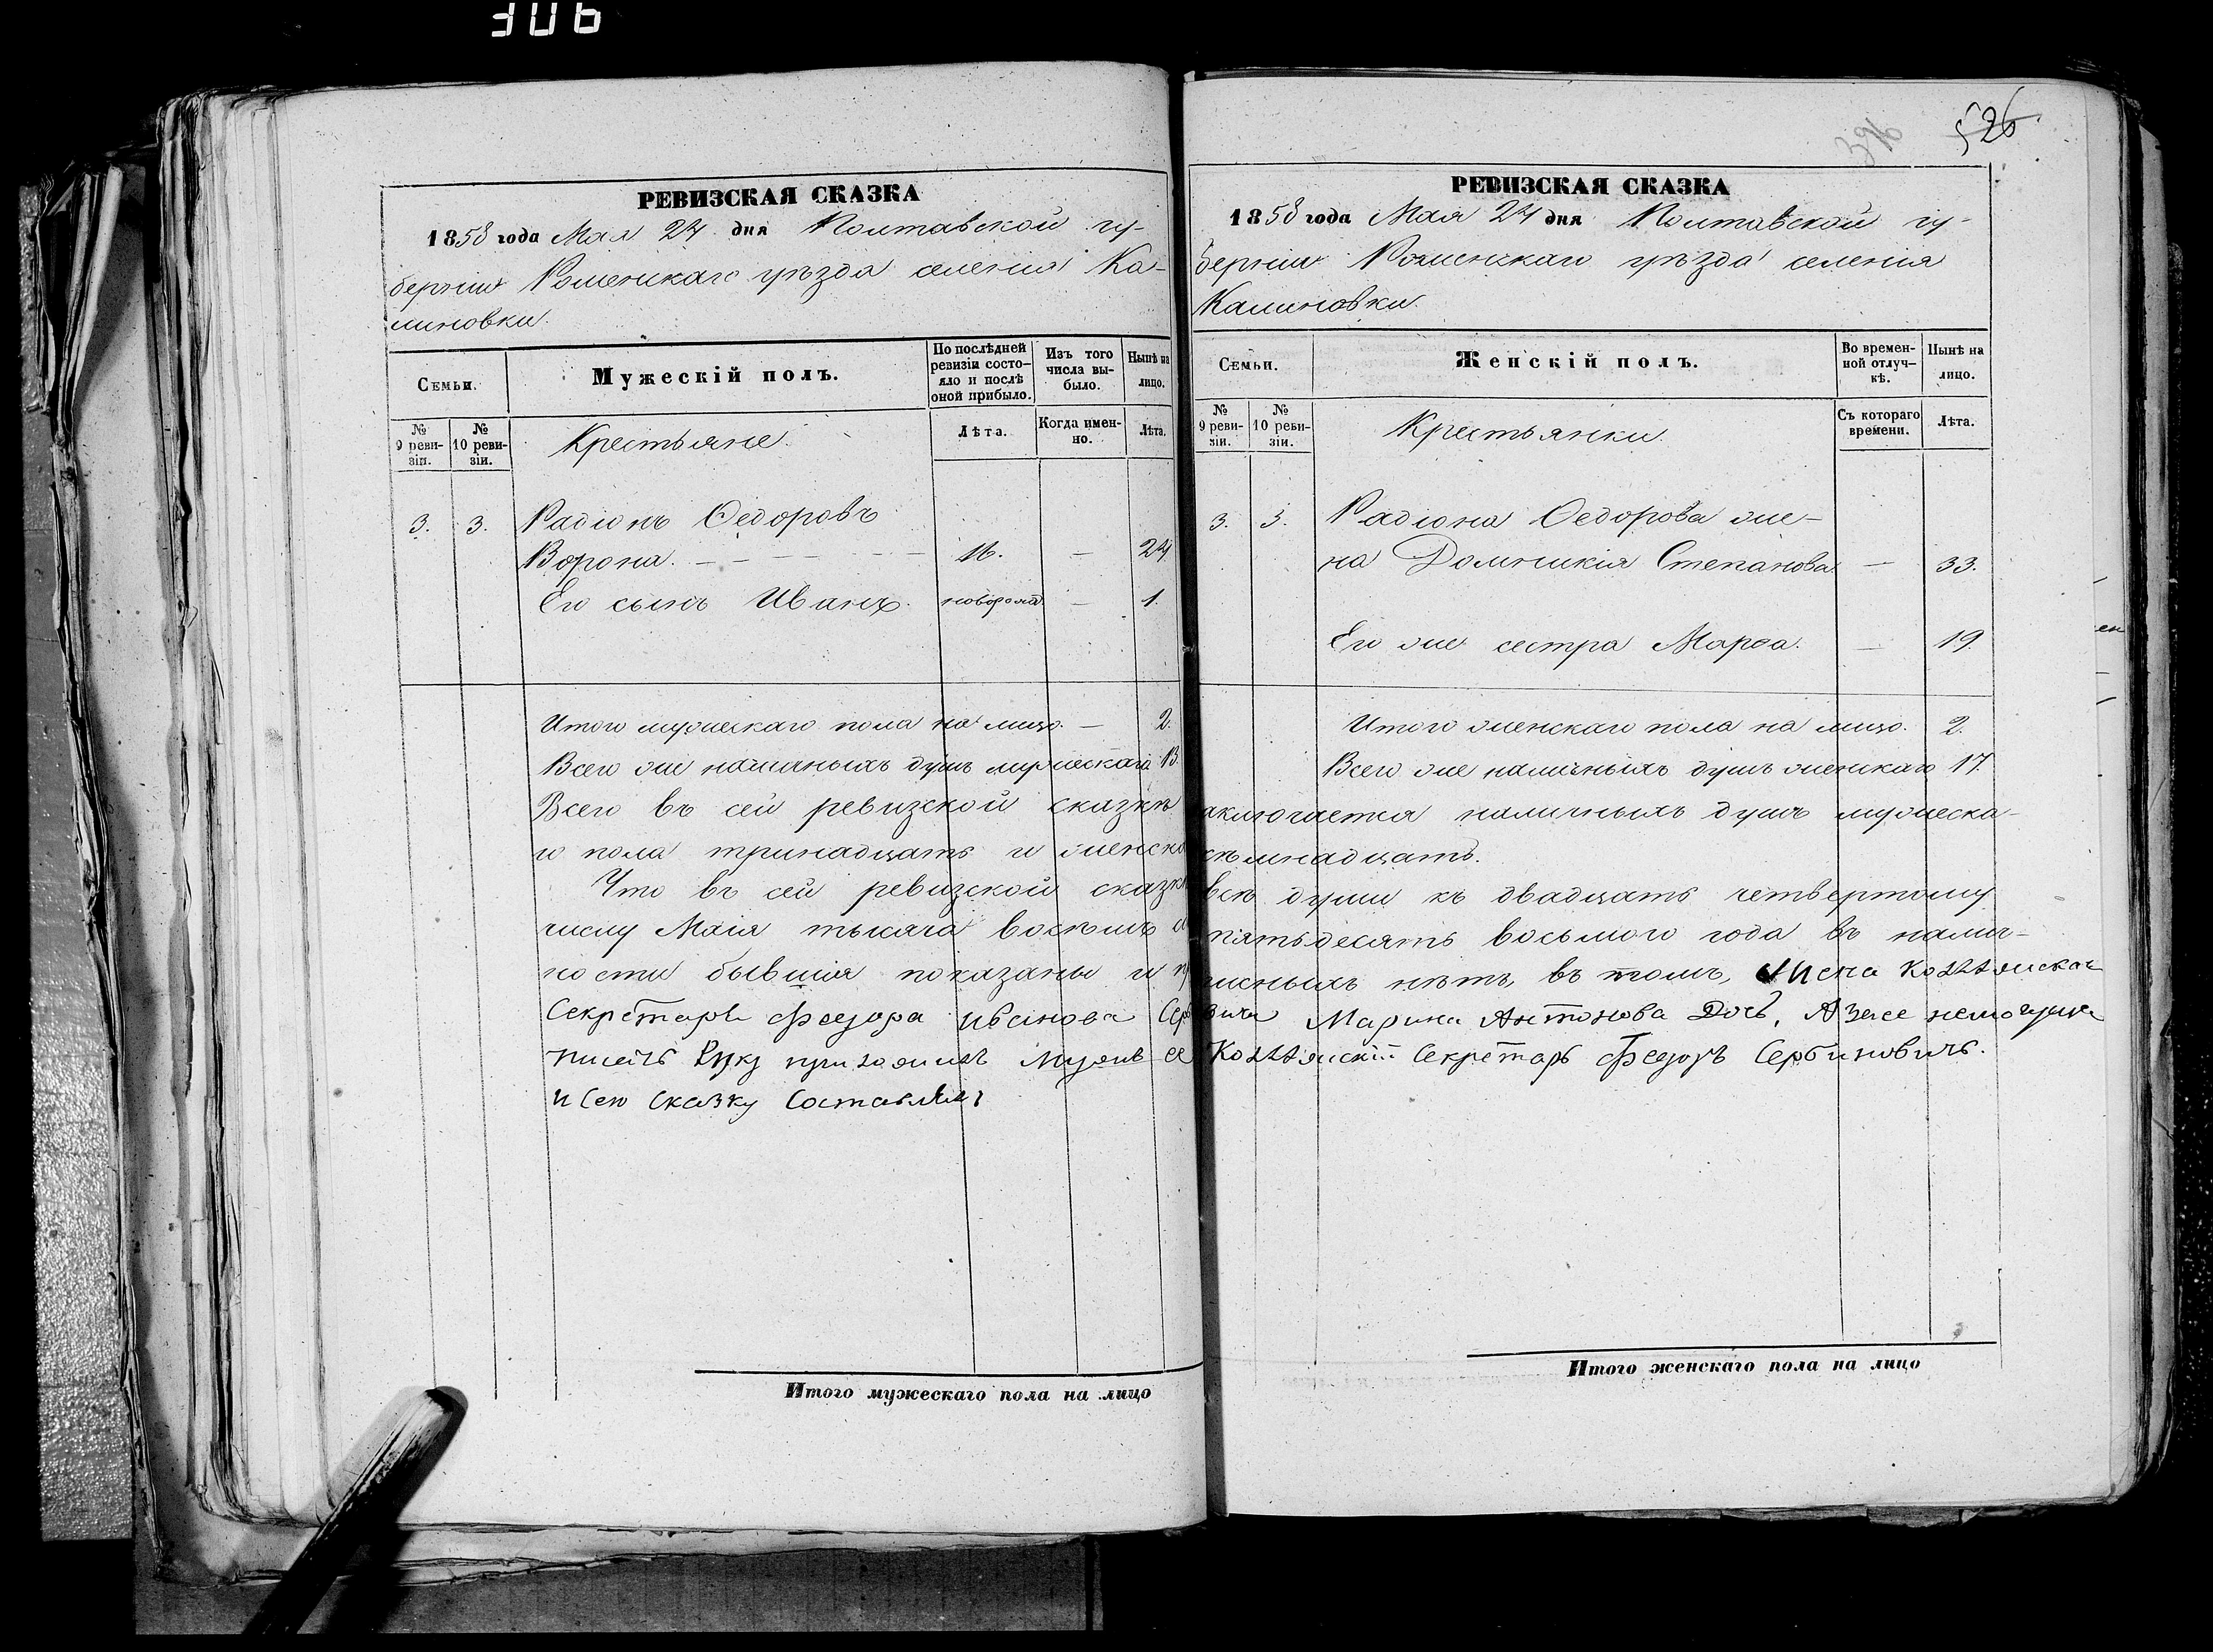 306
РЕВИЗСКАЯ СКАЗКА
1858 года Мая 24 дня Полтавской гу-
берніи Роменскаго уѣзда селенія Ка-
линовки.
Семьи.
Мужескій полъ.
По послѣдней ревизіи состояло и послѣ оной прибыло.
Изъ того числа выбыло.
Нынѣ на лицо.
№ 9 ревизіи.
№ 10 ревизіи.
Крестьяне.
Лѣта.
Когда именно.
Лѣта.
3. 3. Радіонъ Ѳедоровъ
Ворона. — 16. — 24
Его сынъ Иванъ. новорожд. — 1.
Итого мужескаго пола на лицо. — 2.
Всего же наличныхъ душъ мужескаго 13.
526
РЕВИЗСКАЯ СКАЗКА
1858 года Мая 24 дня Полтавской гу-
берніи Роменскаго уѣзда селенія
Калиновки.
Семьи.
Женскій полъ.
Во временной отлучкѣ.
Нынѣ на лицо.
№ 9 ревизіи.
№ 10 ревизіи.
Крестьянки.
Съ котораго времени.
Лѣта.
3. 3. Радіона Ѳедорова же-
на Домникія Степанова — 33.
Его же сестра Марѳа. — 19.
Итого женскаго пола на лицо. 2.
Всего же наличныхъ душъ женскаго 17.
Всего въ сей ревизской сказкѣ аключается наличныхъ душъ мужеска-
го пола тринадцать и женска семнадцать.
Что въ сей ревизской сказк всѣ души къ двадцать четвертому
числу Маія тысяча восемь пятьдесятъ восьмого года въ налич-
ности бывшія показаны и писныхъ нѣтъ, въ томъ,
Секретаря Федора Иванова Сербвича Марина Антонова Дочь, А занее
писать Руку приложилъ Мужъ ее Секретарь Федоръ Сербиновичъ.
И Сею Сказку Составлялъ
Итого мужескаго пола на лицо
Итого женскаго пола на лицо